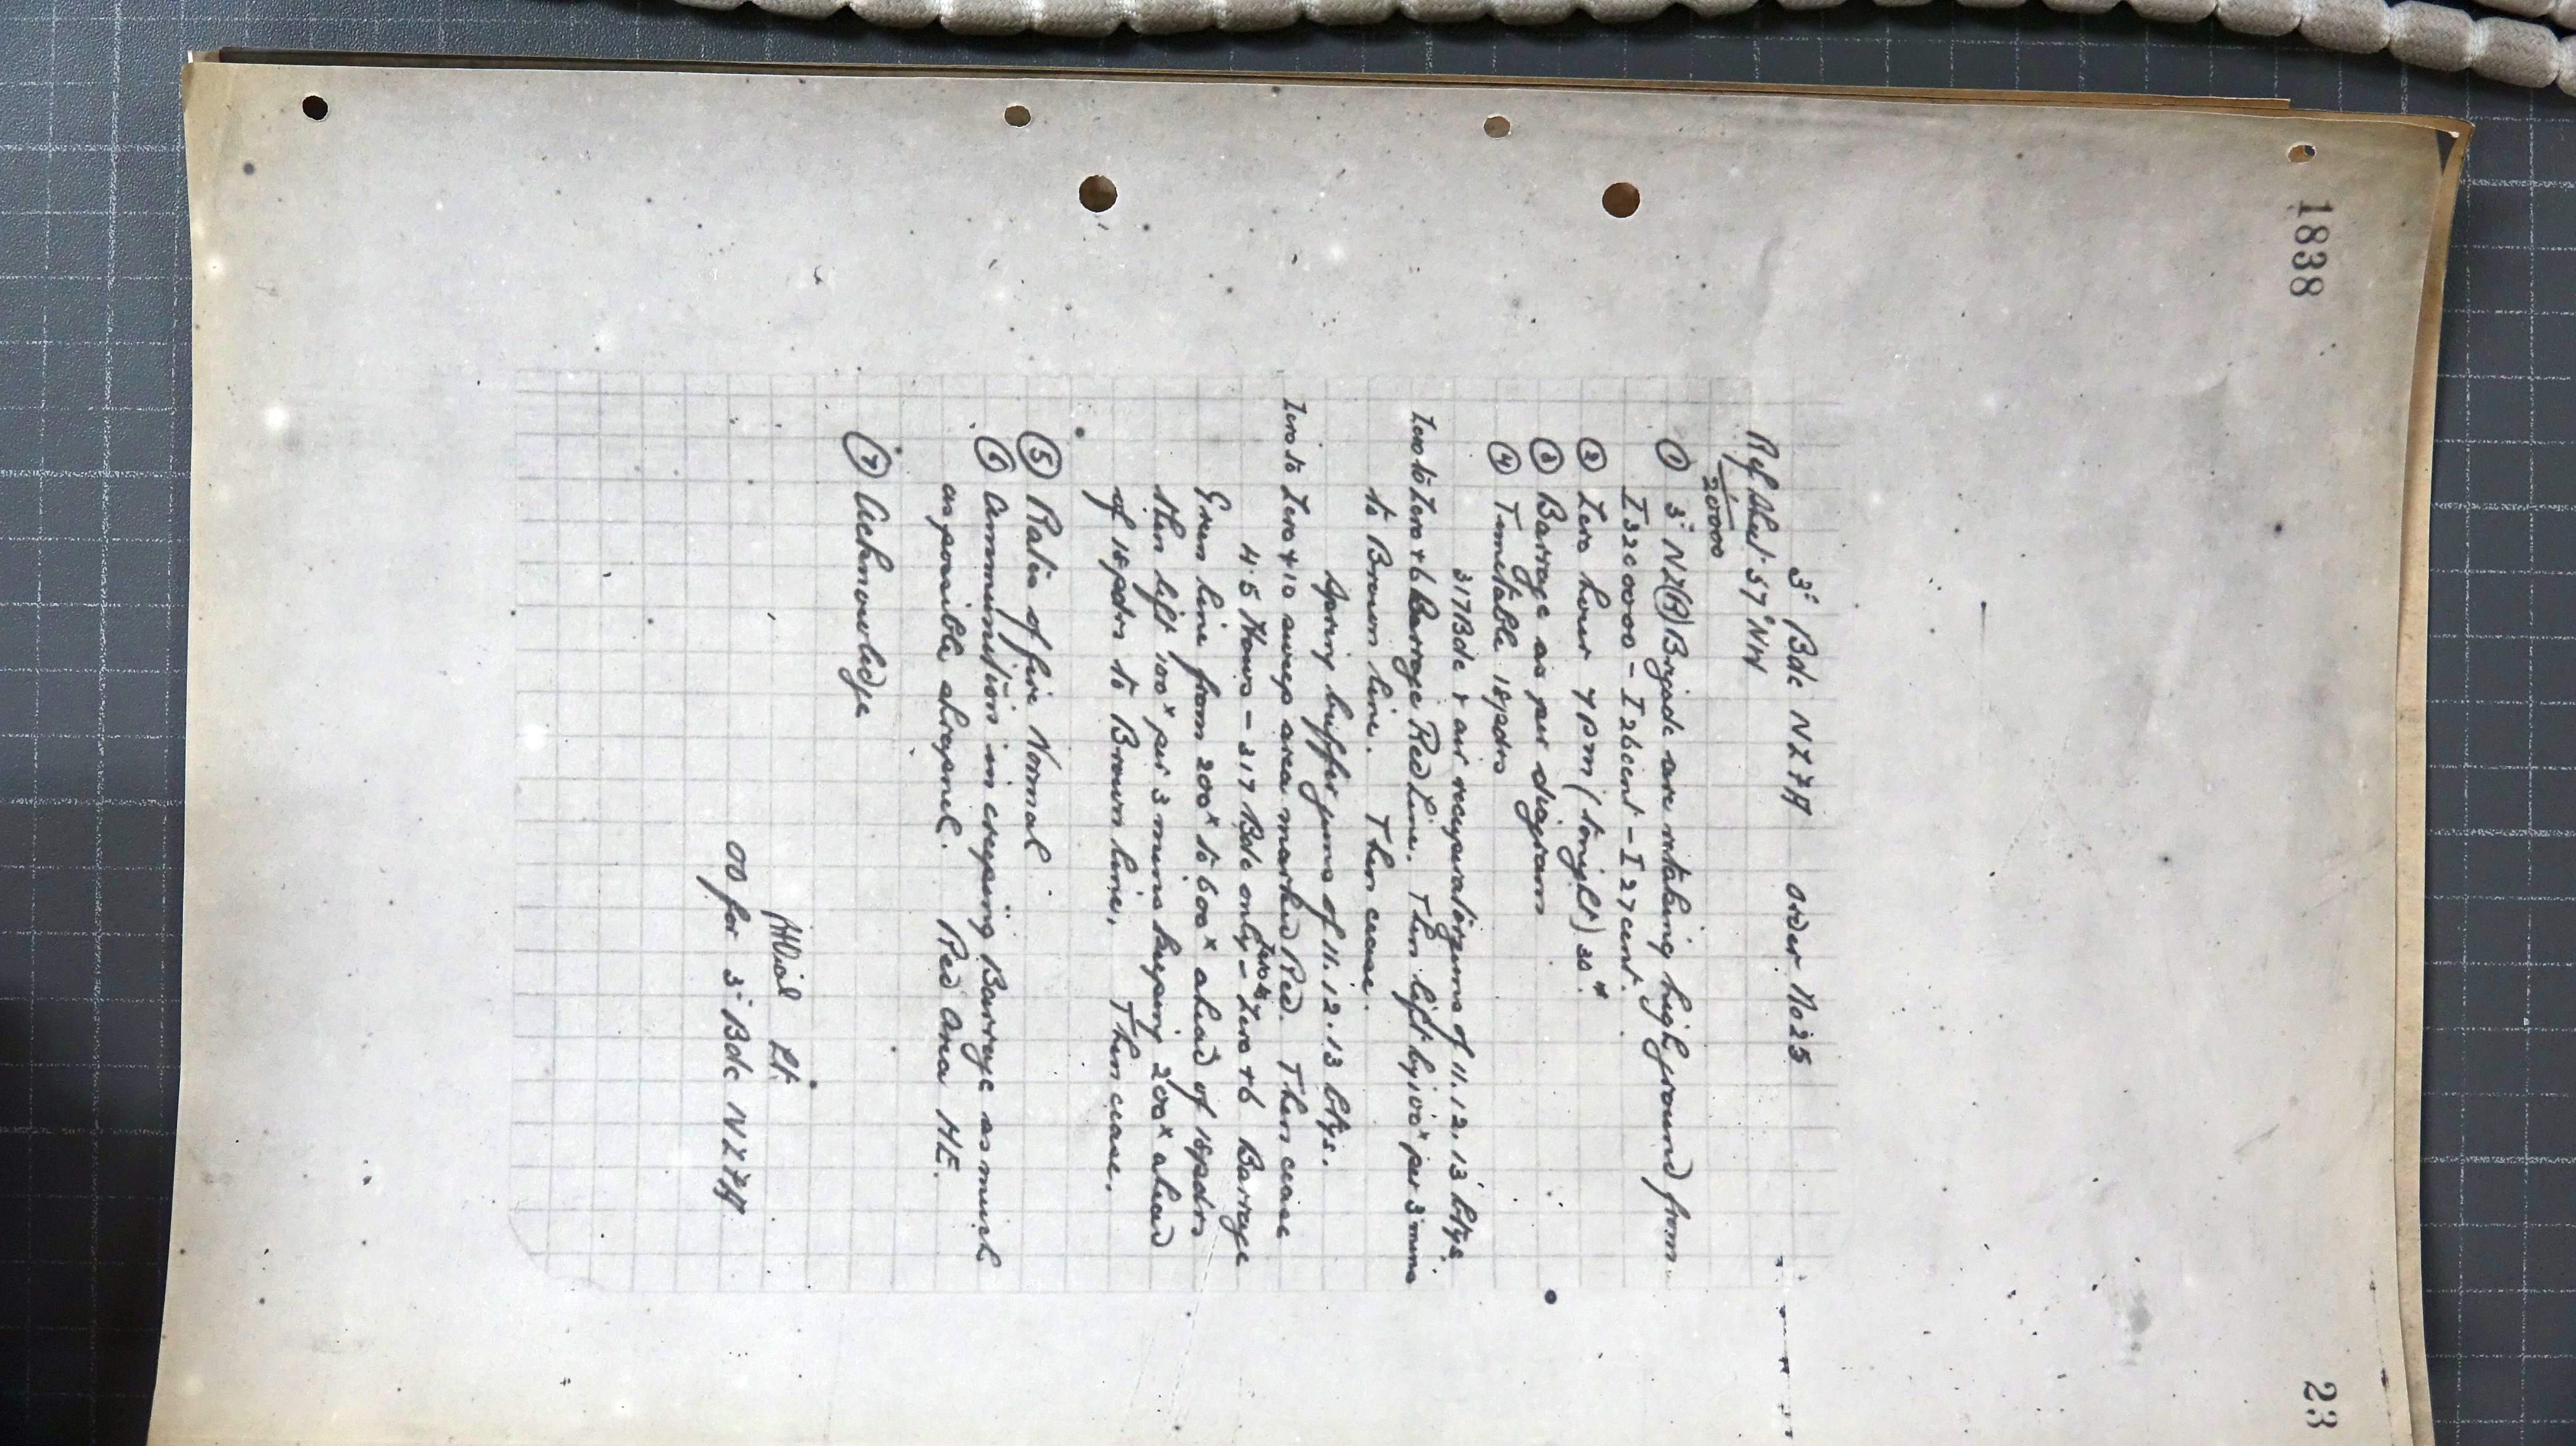 1838
23
3º Bde NZFA Order No 25
Ref Sheet 57ᴰ NW
1/20000
① 3º NZ(R) Brigade are retaking high ground from
I32c00.00 - I26cent - I27cent.
② Zero hour 7 pm (tonight) 30.
③ Barrage as per diagram
④ Timetable 18pdrs
317 Bde & air recuperating guns of 11. 12. 13 btys.
Zero to Zero +6 Barrage Red Line. Then lift by 100ˣ per 3 mins
to Brown line. Then cease.
Spring buffer guns of 11. 12. 13 btys.
Zero to Zero +10 sweep area marked Red. Then cease
4.5 Hows - 317 Bde only - Zero to Zero +6 Barrage
Green line from 200ˣ to 600ˣ ahead of 18pdrs
then lift 100ˣ per 3 mins keeping 200ˣ ahead
of 18pdrs to Brown line. Then cease.
⑤ Rates of fire Normal
⑥ Ammunition in creeping Barrage as much
as possible shrapnel. Red Area HE.
⑦ Acknowledge
Lt.
OO for 3º Bde NZFA